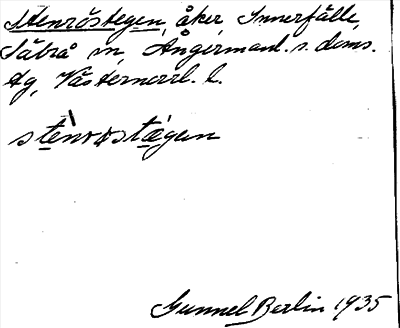 Stenröstegen, åker, Innerfälle,
Säbrå sn, Ångermanl. s. doms.
tg, Västernorrl. l.
stènrɷstǽgen
Gunnel Berlin 1935